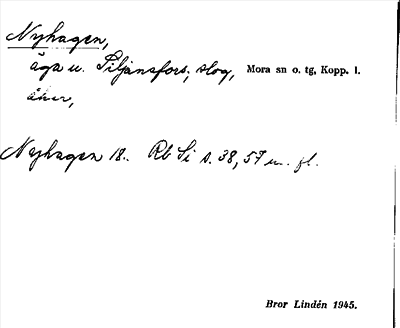 Nyhagen,
äga u. Siljansfors; skog, Mora sn o. tg, Kopp. l.
åker,
Nyhagen 18.. Rb Si s. 38, 57 m. fl.
Bror Lindén 1945.